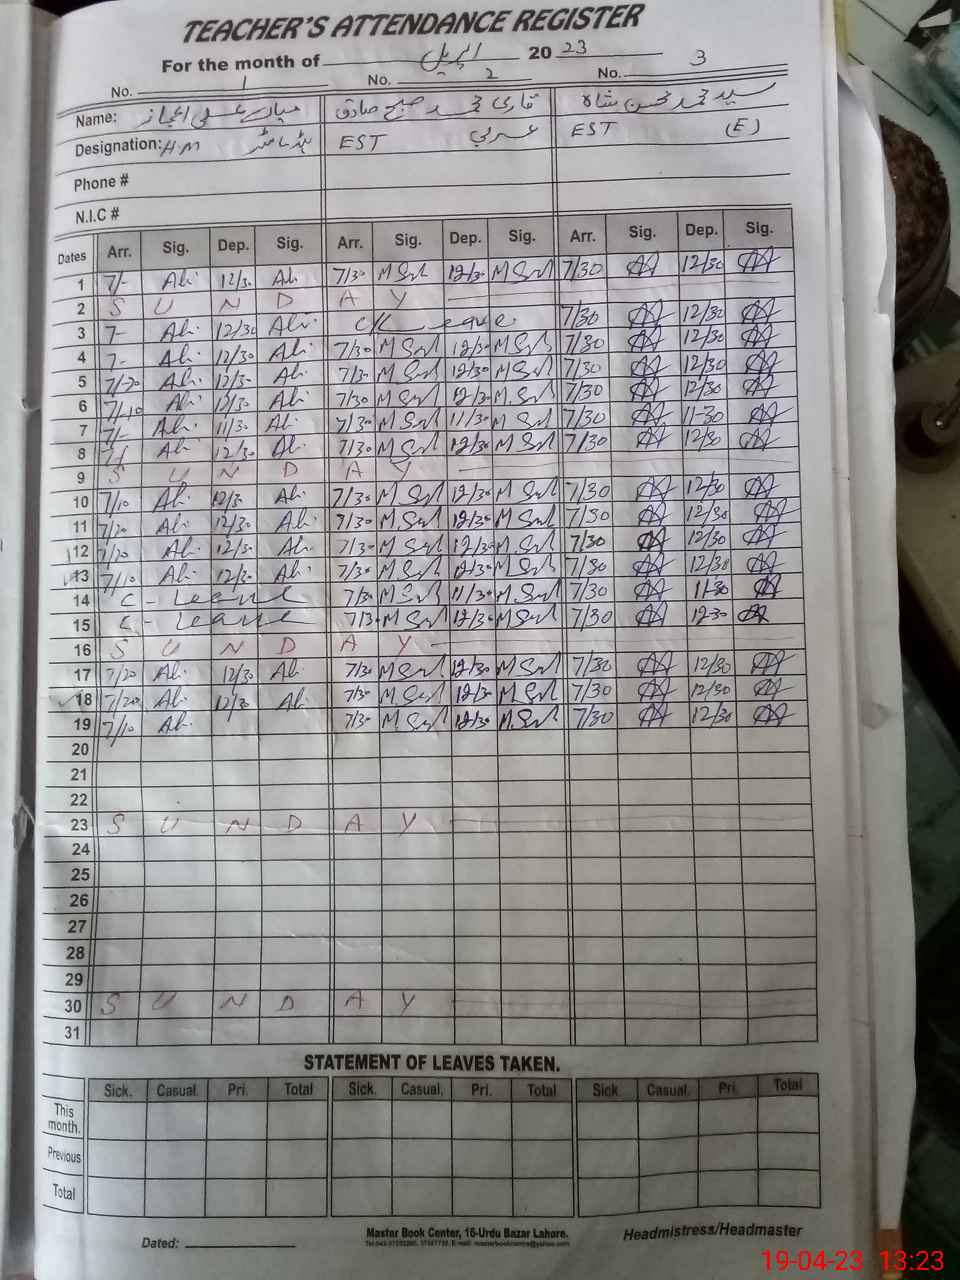 TEACHER'S ATTENDANCE REGISTER
For the month of اپریل 2023
No. 1 No. 2 No. 3
Name: میاں علی اعجاز قاری محمد صبح صادق سید محمد محسن شاہ
Designation: HM ہیڈ ماسٹر EST عربی EST (E)
Phone #
N.I.C #
Dates Arr. Sig. Dep. Sig. Arr. Sig. Dep. Sig. Arr. Sig. Dep. Sig.
1 7/- Ali 12/30 Ali 7/30 12/30 7/30 12/30
2 S U N D A Y
3 7- Ali 12/30 Ali C/Leave 7/30 12/30
4 7- Ali 12/30 Ali 7/30 12/30 7/30 12/30
5 7/20 Ali 12/30 Ali 7/30 12/30 7/30 12/30
6 7/10 Ali 12/30 Ali 7/30 12/30 7/30 12/30
7 7/- Ali 11/30 Ali 7/30 11/30 7/30 11-30
8 Ali 12/30 Ali 7/30 12/30 7/30 12/30
9 S U N D A Y
10 7/10 Ali 12/30 Ali 7/30 12/30 7/30 12/30
11 7/20 Ali 12/30 Ali 7/30 12/30 7/30 12/30
12 7/20 Ali 12/30 Ali 7/30 12/30 7/30 12/30
13 7/10 Ali 12/30 Ali 7/30 12/30 7/30 12/30
14 C-Leave 7/30 11/30 7/30 11-30
15 C-Leave 7/30 12/30 7/30 12-30
16 S U N D A Y
17 7/20 Ali 12/30 Ali 7/30 12/30 7/30 12/30
18 7/20 Ali 12/30 Ali 7/30 12/30 7/30 12/30
19 7/10 Ali 7/30 12/30 7/30 12/30
20
21
22
23 S U N D A Y
24
25
26
27
28
29
30 S U N D A Y
31
STATEMENT OF LEAVES TAKEN.
Sick. Casual. Pri. Total Sick. Casual. Pri. Total Sick. Casual. Pri. Total
This month.
Previous
Total
Dated:
Master Book Center, 16-Urdu Bazar Lahore.
Headmistress/Headmaster
19-04-23 13:23